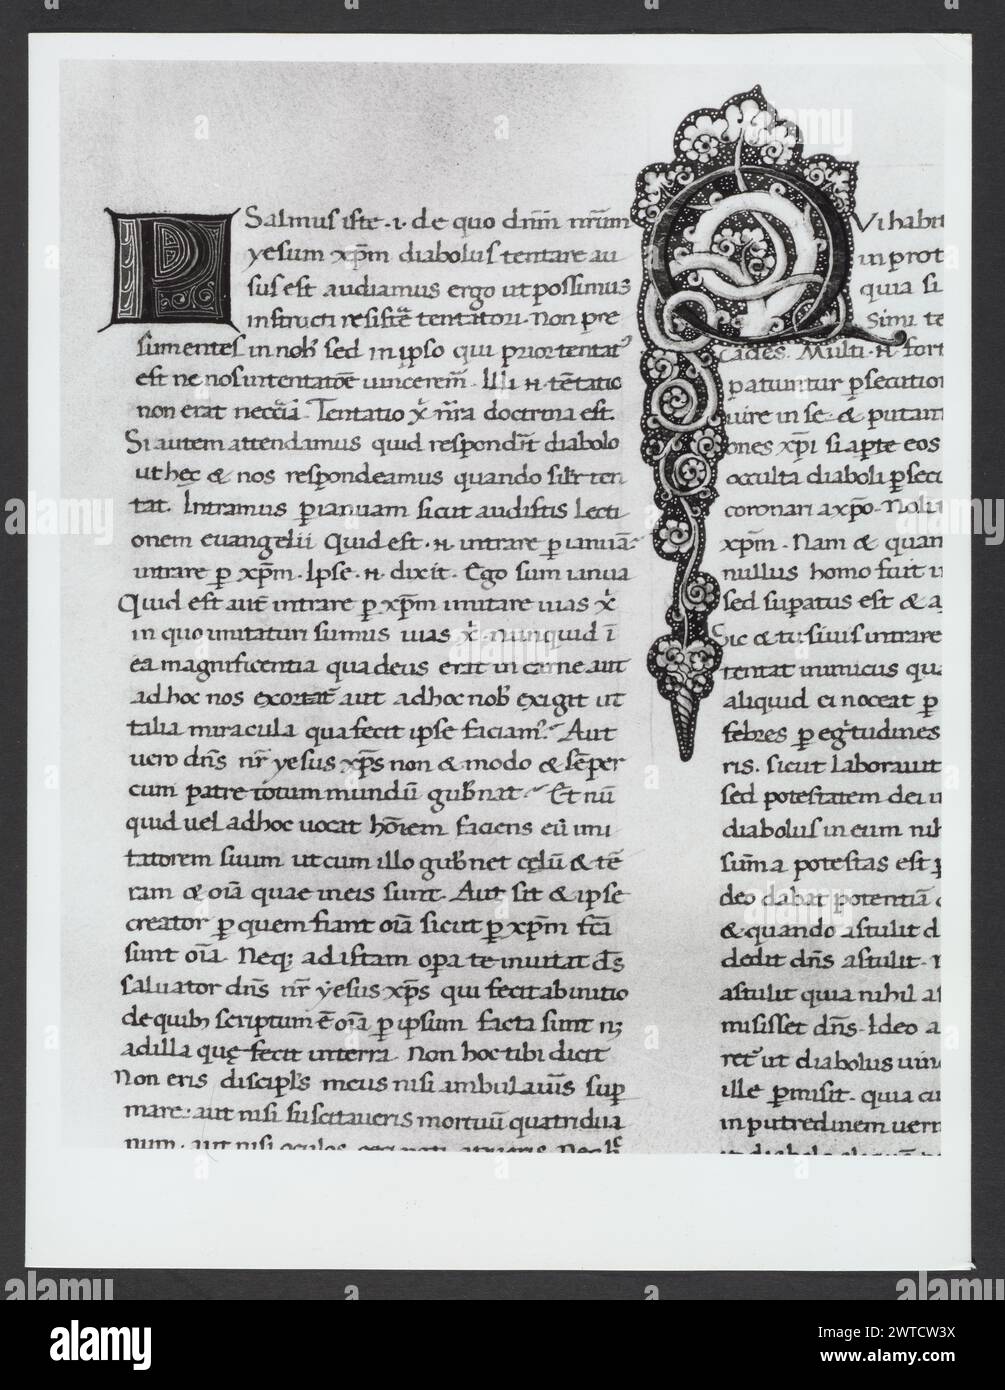 PSalmus iste · i · de quo dn̄m nr̄um
yesum xp̄m diabolus tentare au
sus est audiamus ergo ut possimus
instructi resistē tentatori · Non pre
sumentes in nob sed in ipso qui prior tentat᾽
est ne nos in tentatōe uinceremʳ · Illi n̄ tētatio
non erat neccīa · Tentatio x̄ nr̄a doctrina est.
Si autem attendamus quid respondit diabolo
ut hęc & nos respondeamus quando silr ten
tat. Intramus p ianuam sicut audistis Lecti
onem euangelii Quid est · n̄ intrare p ianuā
intrare p xp̄m · Ipse · n̄ dixit · Ego sum ianua
Quid est aut intrare p xp̄m imitare uias x̄
in quo imitaturi sumus uias x̄ · nunquid ī
ea magnificentia qua deus erat in carne aut
ad hoc nos exortat aut ad hoc nob exigit ut
talia miracula qua fecit ipse faciam᾽ · Aut
uero dn̄s nr̄ yesus xp̄s non & modo & sēper
cum patre totum mundū gubnat · Et nū
quid uel ad hoc uocat hōiem faciens eū imi
tatorem suum ut cum illo gubnet cęlū & tē
ram & oīa quae in eis sunt · Aut sit & ipse
creator p quem fiant oīa sicut p xp̄m fc̄a
sunt oīa · Neq; ad istam opa te inuitat ds̄
saluator dn̄s nr̄ yesus xp̄s qui fecit ab initio
de quib scriptum ē oīa p ipsum facta sunt n;
ad illa quę fecit in terra · Non hoc tibi dicit
Non eris discipls meus nisi ambulaūis sup
mare · aut nisi suscitaueris mortuū quatridua
num · aut nisi oculos
QVi habit
in prot
quia si
Simi te
cades. Multi · n̄ fort
patiuntur psecution
uire in se · & putam
ones xp̄i si apte eos
occulta diaboli psecu
coronari a xp̄o · Noli
xp̄m · Nam & quan
nullus homo fuit
sed supatus est & a
Sic & tu si uis intrare
tentat inimicus qua
aliquid ei noceat p
febres p egritudines
ris · sicut laborauit
sed potestatem dei
diabolus in eum nih
sum̄a potestas est p
deo dabat potentiā
& quando astulit d
dedit dn̄s astulit ·
astulit quia nihil as
misisset dn̄s · Ideo a
ret ut diabolus uinc
ille pmisit · quia cu
in putredinem uerm
alamy
a
www.alamy.com
Image ID: 2WTCW3X